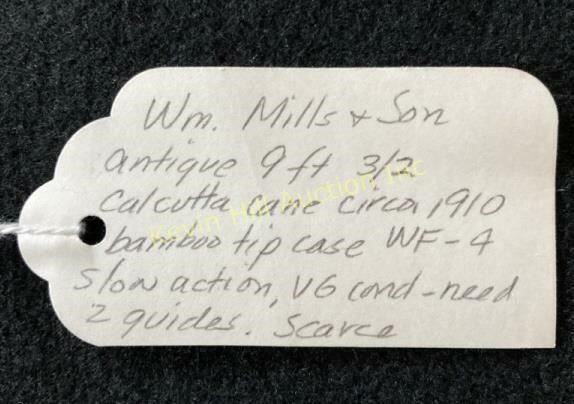 Wm. Mills & Son
antique 9 ft 3/2
Calcutta cane circa 1910
Kevin Hill Auction Inc
bamboo tip case WF-4
slow action, VG cond - need
2 guides. Scarce